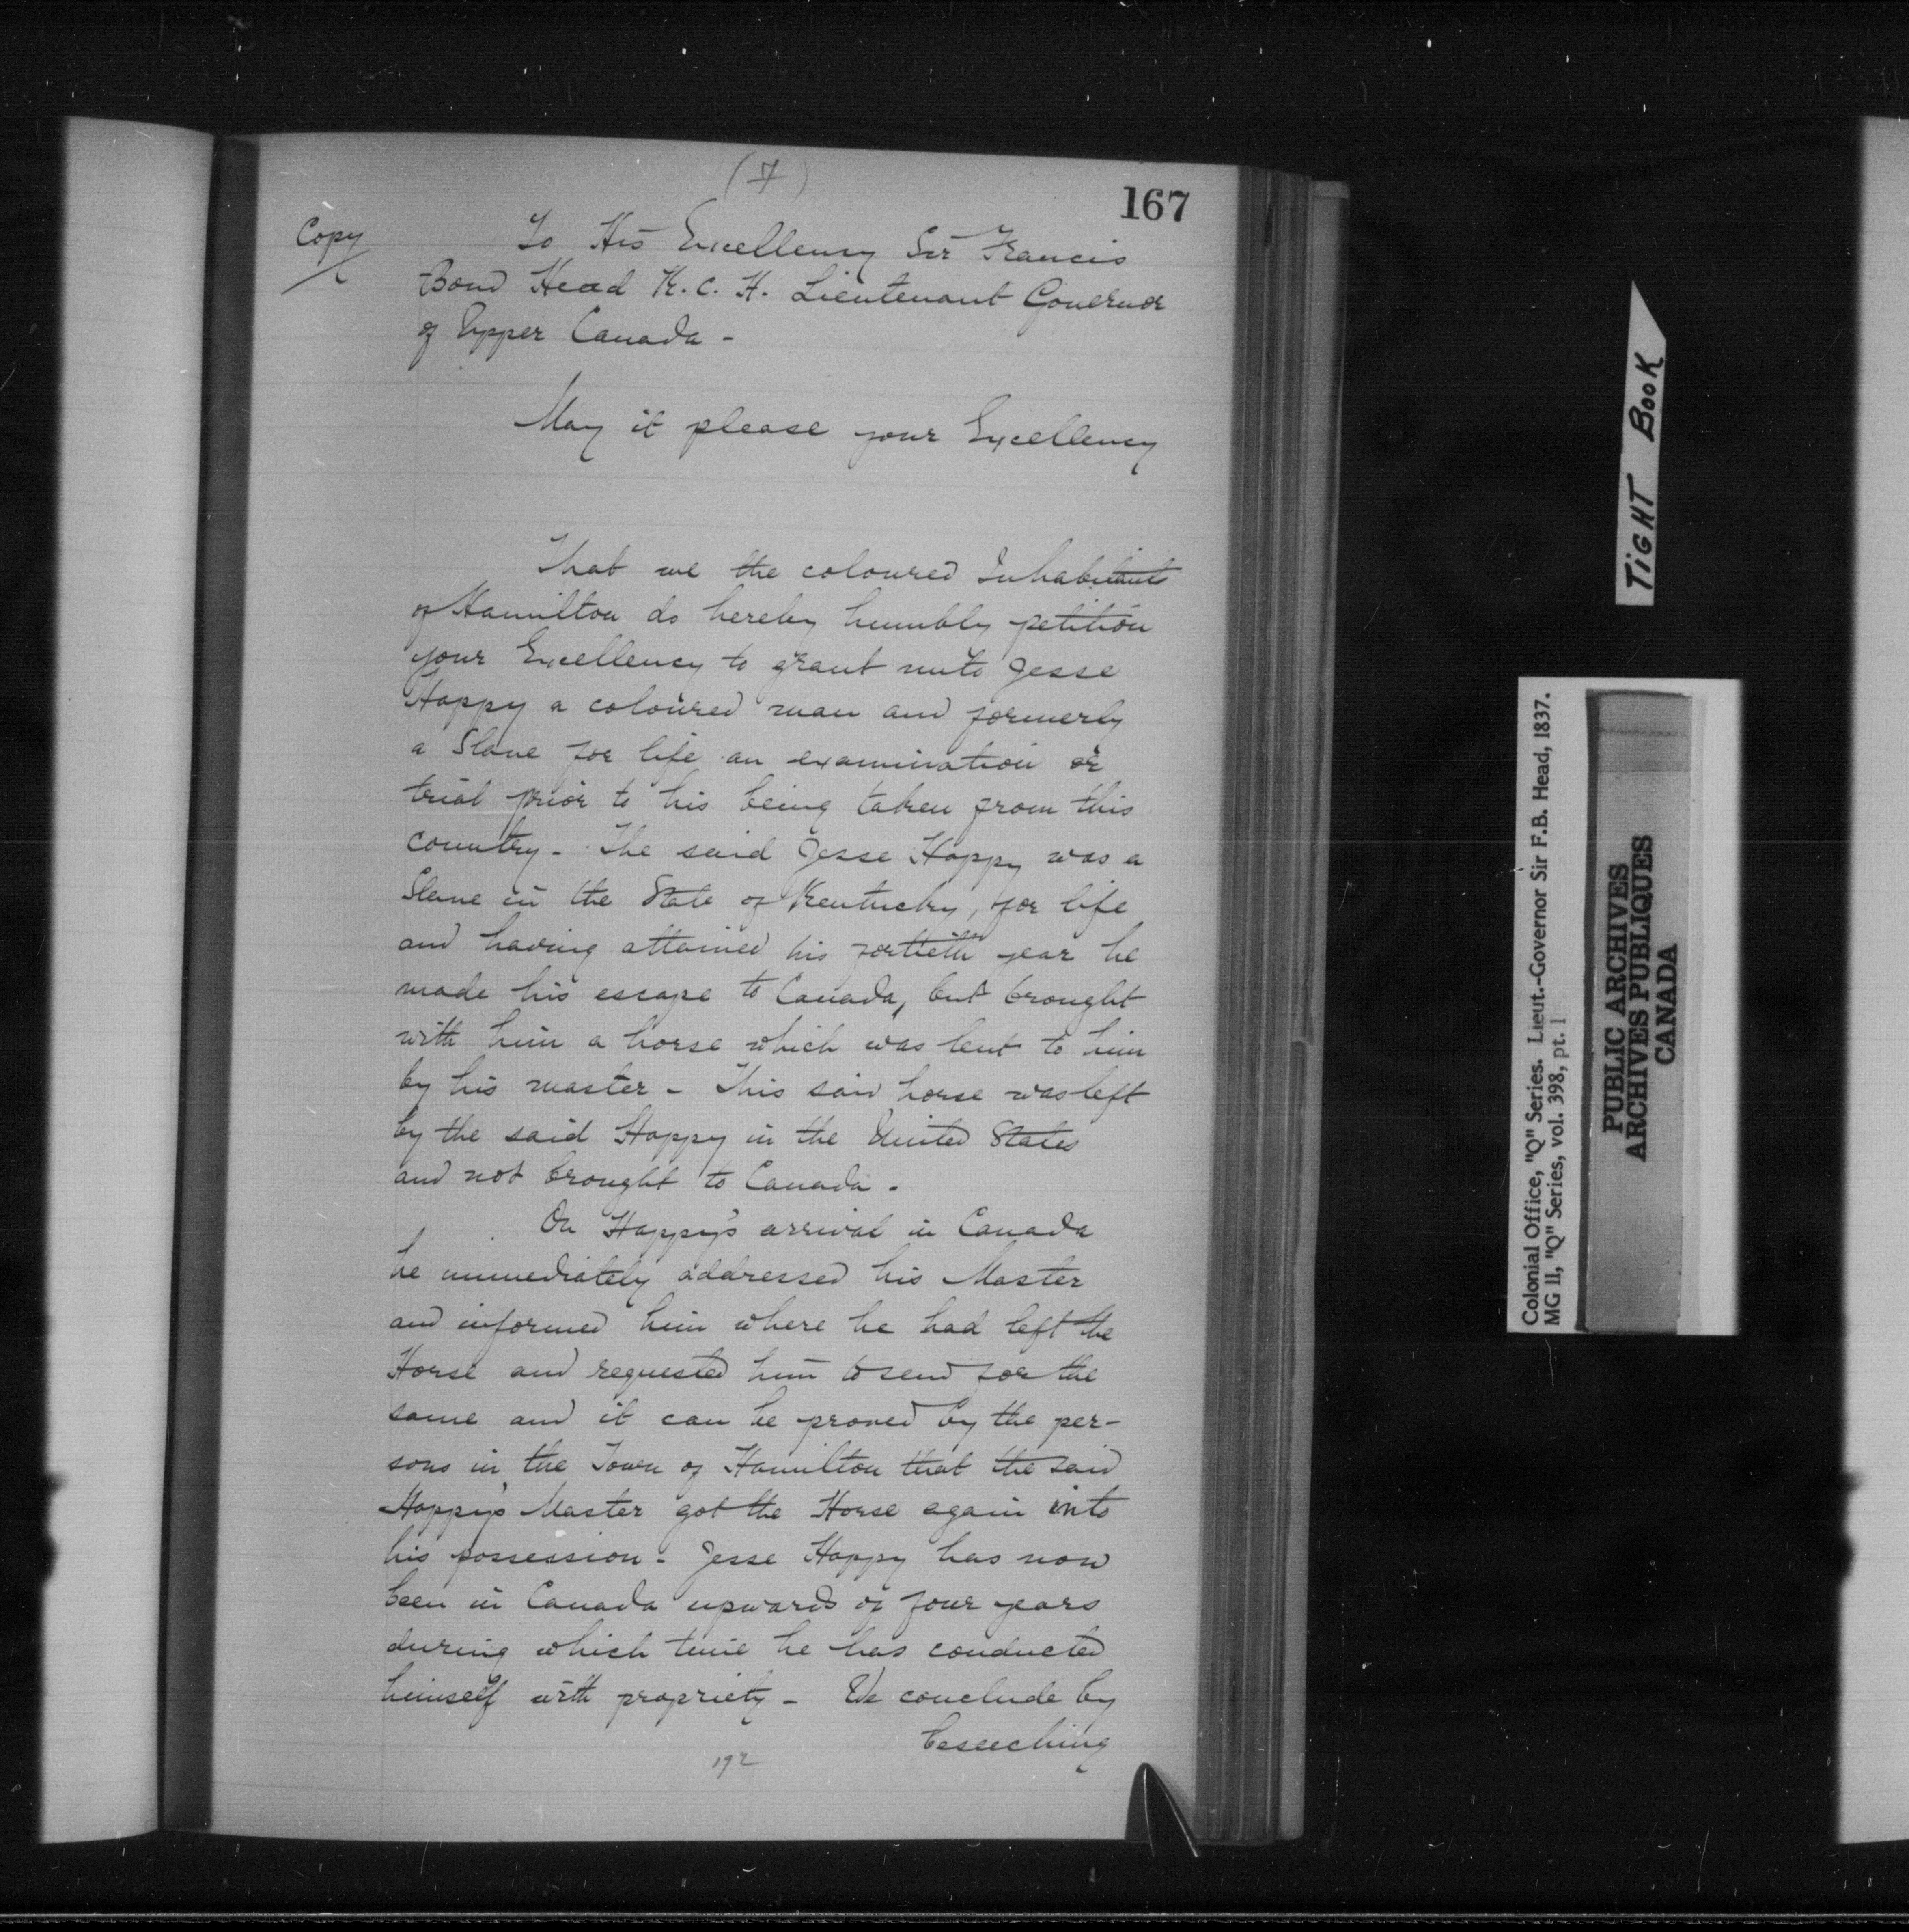 167
Copy
To His Excellency Sir Francis
Bond Head K.C.H. Lieutenant Governor
of Upper Canada -
May it please your Excellency
That we the coloured Inhabitants
of Hamilton do hereby humbly petition
your Excellency to grant unto Jesse
Happy a coloured man and formerly
a Slave for life an examination or
trial prior to his being taken from this
country - The said Jesse Happy was a
Slave in the State of Kentucky, for life
and having attained his fortieth year he
made his escape to Canada, but brought
with him a horse which was lent to him
by his master - This said horse was left
by the said Happy in the United States
and not brought to Canada -
On Happy's arrival in Canada
he immediately addressed his Master
and informed him where he had left the
Horse and requested him to send for the
same and it can be proved by the per-
sons in the Town of Hamilton that the said
Happy's Master got the Horse again into
his possession - Jesse Happy has now
been in Canada upwards of four years
during which time he has conducted
himself with propriety - We conclude by
beseeching
192
TIGHT BOOK
Colonial Office, "Q" Series. Lieut.-Governor Sir F.B. Head, 1837.
MG 11, "Q" Series, vol. 398, pt. 1
PUBLIC ARCHIVES
ARCHIVES PUBLIQUES
CANADA